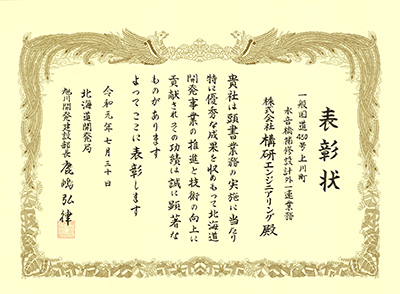 表彰状
一般国道450号上川町
水音橋補修設計外一連業務
株式会社構研エンジニアリング殿
貴社は頭書業務の実施に当たり
特に優秀な成果を収めもって北海道
開発事業の推進と技術の向上に
貢献されその功績は誠に顕著な
ものがあります
よってここに表彰します
令和元年七月三十日
北海道開発局
旭川開発建設部長 鹿嶋弘律